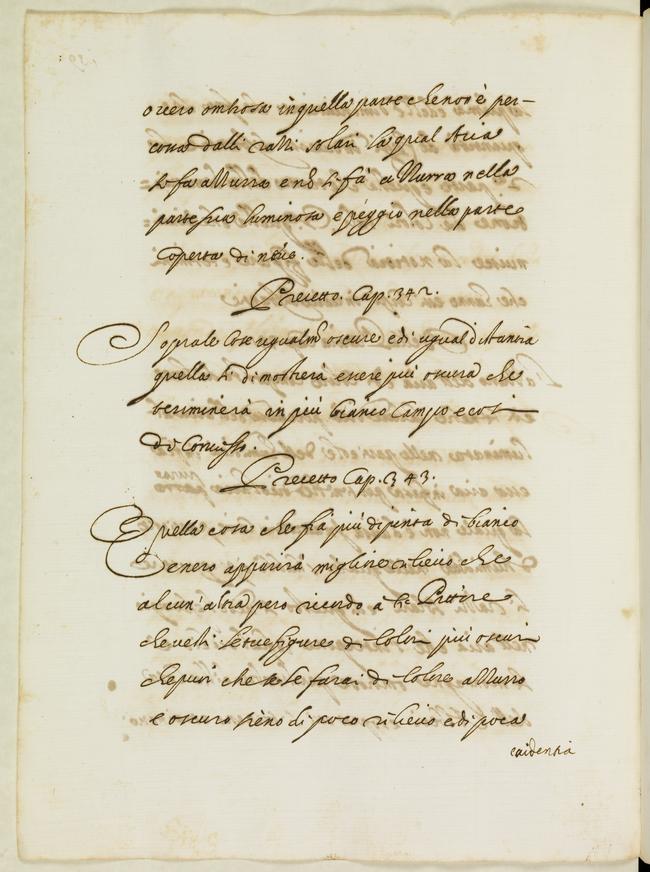 overo ombrosa in quella parte che non è per-
cossa dalli razzi solari la qual Aria
si fa azzurra e nō si fà azzurra nella
parte sua luminosa e peggio nella parte
coperta di neve.
Precetto. Cap. 342.
Sopra le cose egualm.e oscure e di ugual distantia
quella si dimostrerà essere più oscura che
terminerà in più bianco campo e così
di converso.
Precetto Cap. 343.
Quella cosa che fià più dipinta di bianco
e nero apparirà migliore rilievo che
alcun'altra però ricordo à te Pittore
che vesti le tue figure di colori più
che puoi che se le farai di colore azzurro
e oscuro sieno di poco rilievo e di poca
evidentia